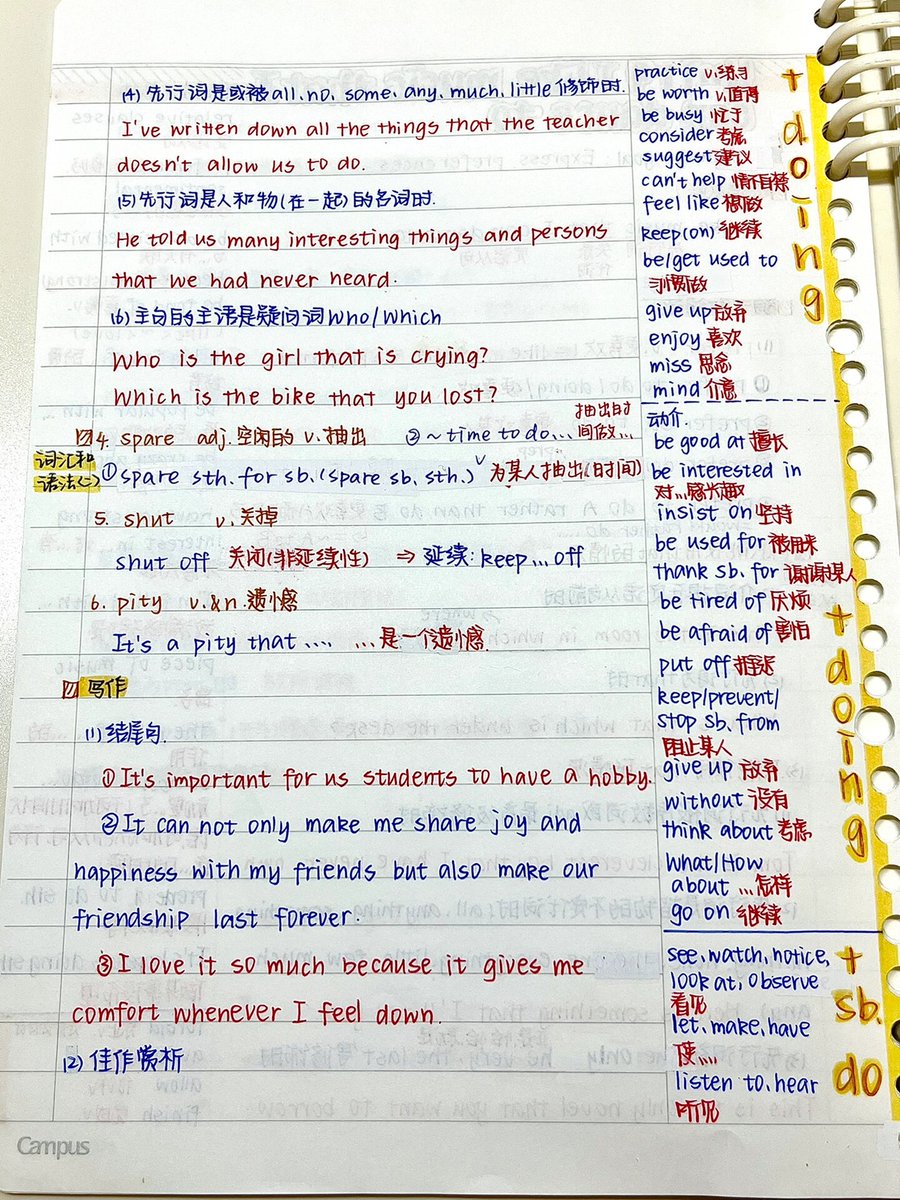 (4) 先行词是或被all、no、some、any、much、little修饰时.
I've written down all the things that the teacher
doesn't allow us to do.
(5) 先行词是人和物(在一起)的名词时.
He told us many interesting things and persons
that we had never heard.
(6) 主句的主语是疑问词who/which
Who is the girl that is crying?
Which is the bike that you lost?
4. spare adj.空闲的 v.抽出 ② ~ time to do... 抽出时间做...
词汇和
语法(二)
① spare sth. for sb.(spare sb. sth.) 为某人抽出(时间)
5. shut v.关掉
shut off 关闭(非延续性) ⇒ 延续:keep...off
6. pity v.&n.遗憾
It's a pity that .... ...是一个遗憾.
写作
(1) 结尾句.
①It's important for us students to have a hobby.
②It can not only make me share joy and
happiness with my friends but also make our
friendship last forever.
③I love it so much because it gives me
comfort whenever I feel down.
(2) 佳作赏析
Campus
practice v.练习
be worth v.值得
be busy 忙于
consider 考虑
suggest 建议
can't help 情不自禁
feel like 想做
keep(on) 继续
be/get used to
习惯做
give up 放弃
enjoy 喜欢
miss 思念
mind 介意
+doing
动介.
be good at 擅长
be interested in
对...感兴趣
insist on 坚持
be used for 被用来
thank sb. for 谢谢某人
be tired of 厌烦
be afraid of 害怕
put off 推迟
keep/prevent/
stop sb. from
阻止某人
give up 放弃
without 没有
think about 考虑
what/How
about ...怎样
go on 继续
+doing
see、watch、notice、
look at、observe
看见
let、make、have
使....
listen to、hear
听见
+
sb.
do